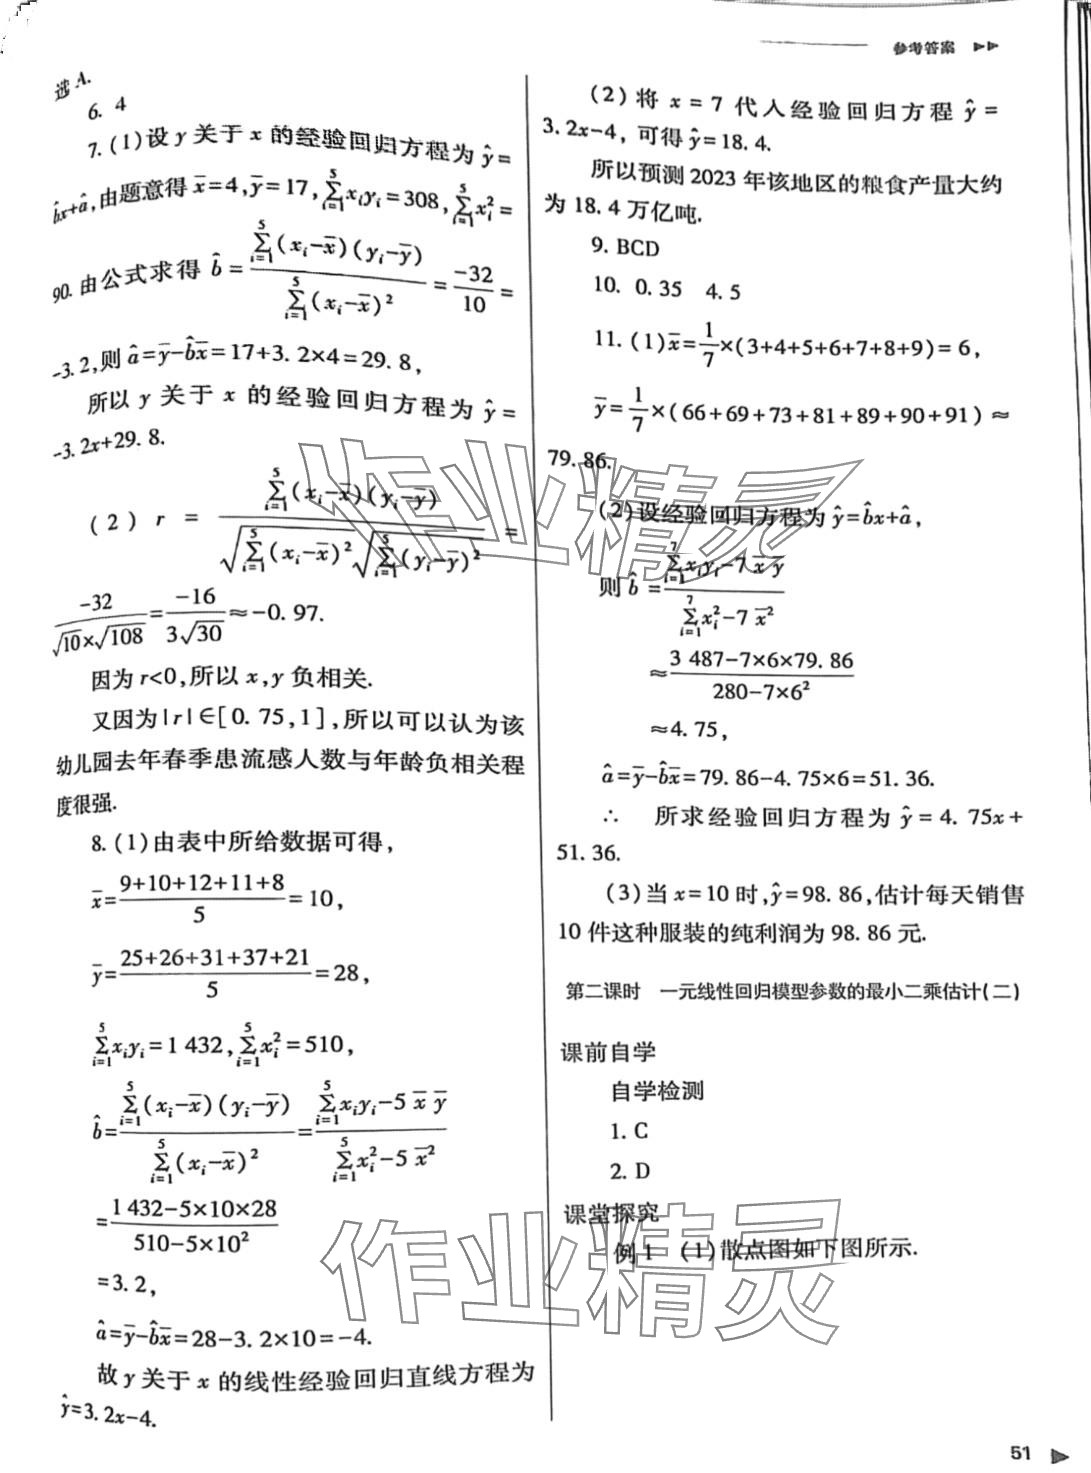 参考答案
选 A.
6. 4
7. (1)设 y 关于 x 的经验回归方程为 ŷ=
b̂x+â,由题意得 x̄=4,ȳ=17,∑(i=1→5)xᵢyᵢ=308,∑(i=1→5)xᵢ²=
90. 由公式求得 b̂=∑(i=1→5)(xᵢ-x̄)(yᵢ-ȳ)/∑(i=1→5)(xᵢ-x̄)²=-32/10=
-3.2,则 â=ȳ-b̂x̄=17+3.2×4=29.8,
所以 y 关于 x 的经验回归方程为 ŷ=
-3.2x+29.8.
(2) r=∑(i=1→5)(xᵢ-x̄)(yᵢ-ȳ)/(√∑(i=1→5)(xᵢ-x̄)²√∑(i=1→5)(yᵢ-ȳ)²)=
-32/(√10×√108)=-16/(3√30)≈-0.97.
因为 r<0,所以 x,y 负相关.
又因为|r|∈[0.75,1],所以可以认为该
幼儿园去年春季患流感人数与年龄负相关程
度很强.
8. (1)由表中所给数据可得,
x̄=(9+10+12+11+8)/5=10,
ȳ=(25+26+31+37+21)/5=28,
∑(i=1→5)xᵢyᵢ=1 432,∑(i=1→5)xᵢ²=510,
b̂=∑(i=1→5)(xᵢ-x̄)(yᵢ-ȳ)/∑(i=1→5)(xᵢ-x̄)²=(∑(i=1→5)xᵢyᵢ-5 x̄ ȳ)/(∑(i=1→5)xᵢ²-5 x̄²)
=(1 432-5×10×28)/(510-5×10²)
=3.2,
â=ȳ-b̂x̄=28-3.2×10=-4.
故 y 关于 x 的线性经验回归直线方程为
ŷ=3.2x-4.
(2)将 x=7 代入经验回归方程 ŷ=
3.2x-4, 可得 ŷ=18.4.
所以预测 2023 年该地区的粮食产量大约
为 18.4 万亿吨.
9. BCD
10. 0.35 4.5
11. (1)x̄=1/7×(3+4+5+6+7+8+9)=6,
ȳ=1/7×(66+69+73+81+89+90+91)≈
79.86.
(2)设经验回归方程为 ŷ=b̂x+â,
则 b̂=(∑(i=1→7)xᵢyᵢ-7 x̄ ȳ)/(∑(i=1→7)xᵢ²-7 x̄²)
≈(3 487-7×6×79.86)/(280-7×6²)
≈4.75,
â=ȳ-b̂x̄=79.86-4.75×6=51.36.
∴ 所求经验回归方程为 ŷ=4.75x+
51.36.
(3)当 x=10 时,ŷ=98.86,估计每天销售
10 件这种服装的纯利润为 98.86 元.
第二课时 一元线性回归模型参数的最小二乘估计(二)
课前自学
自学检测
1. C
2. D
课堂探究
例 1 (1)散点图如下图所示.
作业精灵
作业精灵
51